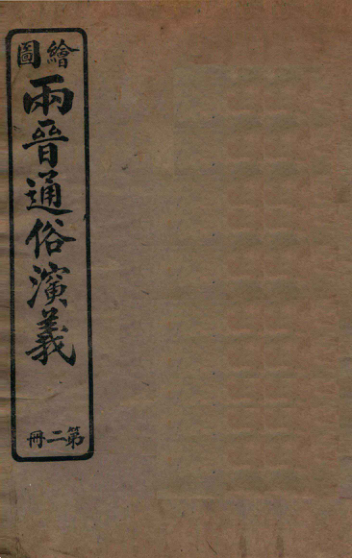 繪圖
兩晉通俗演義
第二冊